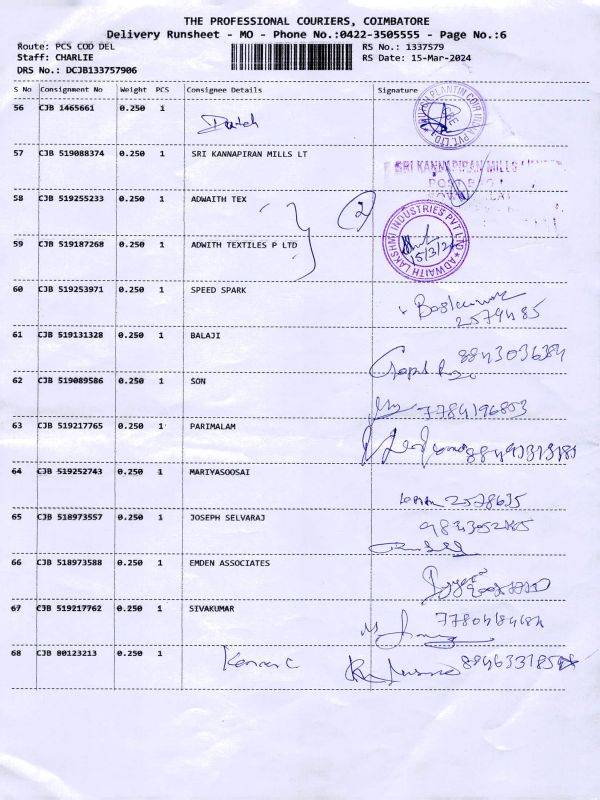 THE PROFESSIONAL COURIERS, COIMBATORE
Delivery Runsheet - MO - Phone No.:0422-3505555 - Page No.:6
Route: PCS COD DEL RS No.: 1337579
Staff: CHARLIE RS Date: 15-Mar-2024
DRS No.: DCJB133757906
S No Consignment No Weight PCS Consignee Details Signature
56 CJB 1465661 0.250 1
57 CJB 519088374 0.250 1 SRI KANNAPIRAN MILLS LT
SRI KANNAPIRAN MILLS
58 CJB 519255233 0.250 1 ADWAITH TEX 2
59 CJB 519187268 0.250 1 ADWITH TEXTILES P LTD
ADWAITH LAKSHMI INDUSTRIES PVT LTD
15/3/24
60 CJB 519253971 0.250 1 SPEED SPARK
61 CJB 519131328 0.250 1 BALAJI
62 CJB 519089586 0.250 1 SON
63 CJB 519217765 0.250 1 PARIMALAM
64 CJB 519252743 0.250 1 MARIYASOOSAI
65 CJB 518973557 0.250 1 JOSEPH SELVARAJ
66 CJB 518973588 0.250 1 EMDEN ASSOCIATES
67 CJB 519217762 0.250 1 SIVAKUMAR
68 CJB 80123213 0.250 1